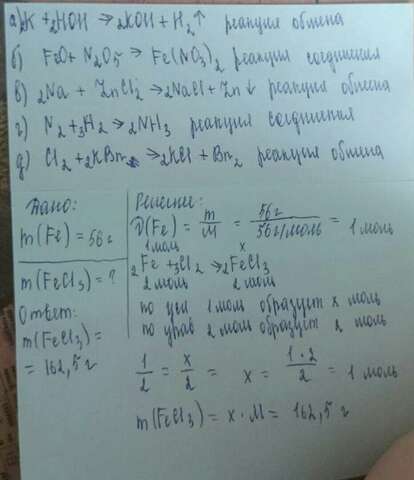 а) 2K + 2HOH → 2KOH + H₂↑ реакция обмена
б) FeO + N₂O₅ → Fe(NO₃)₂ реакция соединения
в) 2Na + ZnCl₂ → 2NaCl + Zn↓ реакция обмена
г) N₂ + 3H₂ → 2NH₃ реакция соединения
д) Cl₂ + 2KBr → 2KCl + Br₂ реакция обмена
Дано:
m(Fe) = 56 г
m(FeCl₃) = ?
Ответ:
m(FeCl₃) =
= 162,5 г
Решение:
ν(Fe) = m/M = 56 г/56 г/моль = 1 моль
1 моль x
2Fe + 3Cl₂ → 2FeCl₃
2 моль 2 моль
по усл 1 моль образует x моль
по урав 2 моль образует 2 моль
1/2 = x/2 = x = 1·2/2 = 1 моль
m(FeCl₃) = x · M = 162,5 г